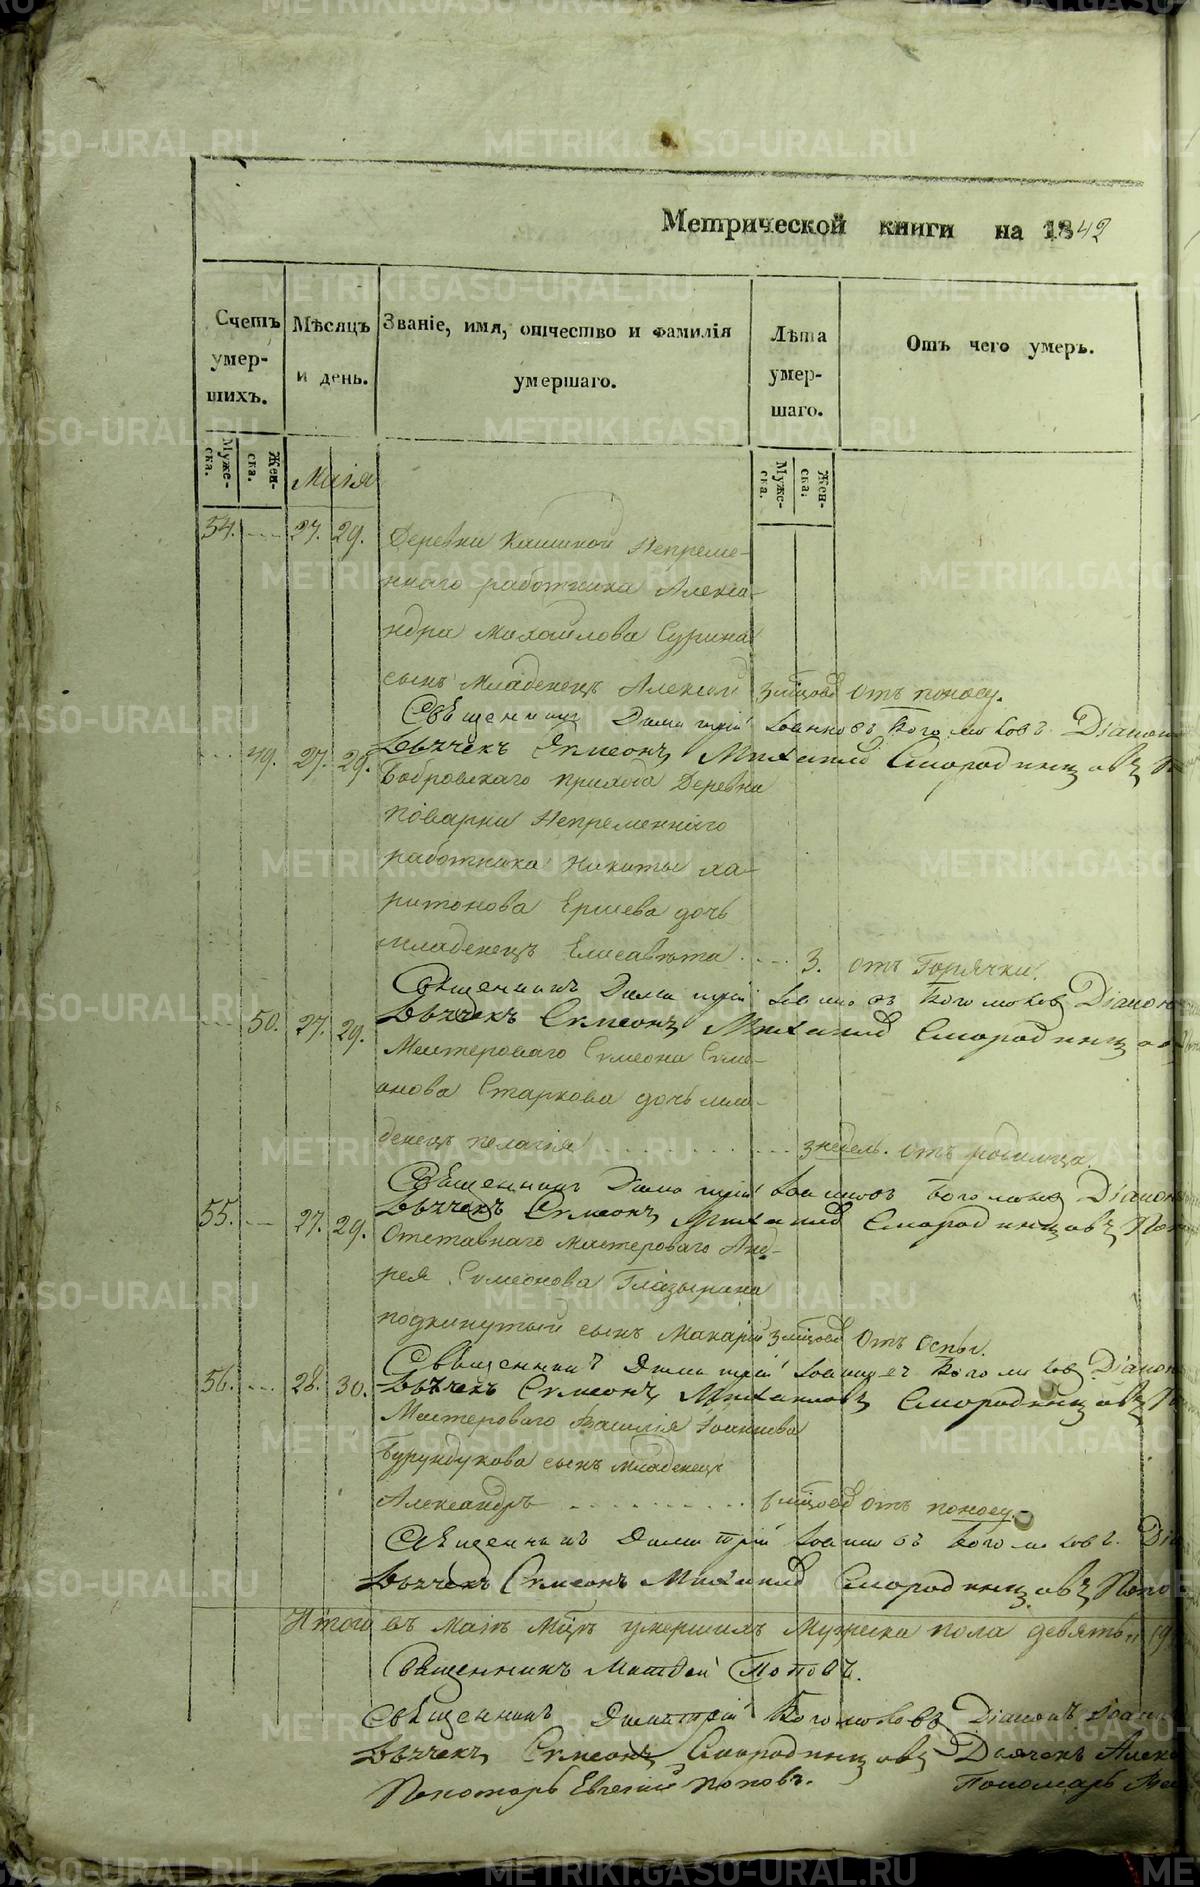 Метрической книги на 1842
Счетъ умершихъ.
Мѣсяцъ и день.
Званіе, имя, отчество и фамилія умершаго.
Лѣта умершаго.
Отъ чего умеръ.
Мужеска.
Женска.
Мужеска.
Женска.
Маія
54. 27. 29. Деревни Непреме-
ннаго работника Алекса-
ндра Михайлова Сурина
сынъ Младенецъ Алексий 3 мѣсцовъ отъ поносу.
Священникъ Димитрій Іоанновъ Боголюбовъ Діаконъ
Дьячекъ Симеонъ Михаиловъ Смородинцовъ
49. 27. 29. Бобровскаго приходa Деревни
Поварни Непременнаго
работника Никиты Ха-
ритонова Ершева дочь
младенецъ Елисавета 3. отъ Горячки.
Священникъ Димитрій Іоанновъ Боголюбовъ Діаконъ
Дьячекъ Симеонъ Михаиловъ Смородинцовъ
50. 27. 29. Мастероваго Симеона Симе-
онова Старкова дочь мла-
денецъ Пелагія 3 недель. отъ родимца.
Священникъ Димитрій Іоанновъ Боголюбовъ Діаконъ
Дьячекъ Симеонъ Михаиловъ Смородинцовъ
55. 27. 29. Отставнаго мастероваго Анд-
рея Симеонова Глазырина
подкинутый сынъ Макарій 3 мѣсцовъ отъ оспы.
Священникъ Димитрій Іоанновъ Боголюбовъ Діаконъ
Дьячекъ Симеонъ Михаиловъ Смородинцовъ
56. 28. 30. Мастероваго Василія Іоаннова
Бурундукова сынъ младенецъ
Александръ мѣсцовъ отъ поносу.
Священникъ Димитрій Іоанновъ Боголюбовъ.
Дьячекъ Симеонъ Михаиловъ Смородинцовъ
Итого въ маіѣ мцѣ умершихъ Мужеска пола девять
Священникъ Матвей Поповъ.
Священникъ Димитрій Боголюбовъ Діаконъ
Дьячекъ Симеонъ Смородинцовъ Дьячекъ
Пономарь Евгеній Поповъ. Пономарь
METRIKI.GASO-URAL.RU